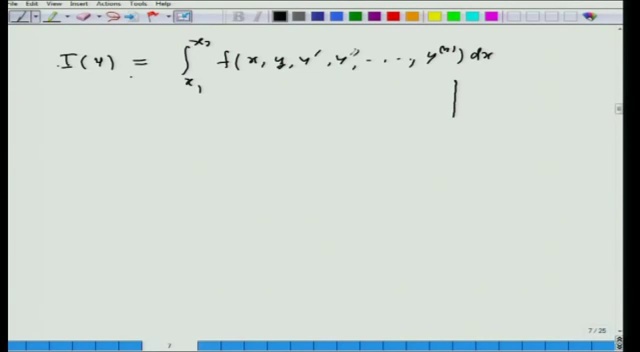 File Edit View Insert Actions Tools Help
I(y) = ∫_{x₁}^{x₂} f(x, y, y', y'', ...., y^{(n)}) dx
7 / 25
7